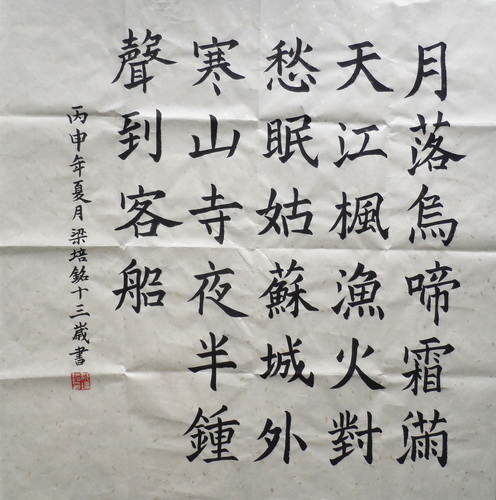 月落烏啼霜滿
天江楓漁火對
愁眠姑蘇城外
寒山寺夜半鍾
聲到客船
丙申年夏月梁培銘十三歲書